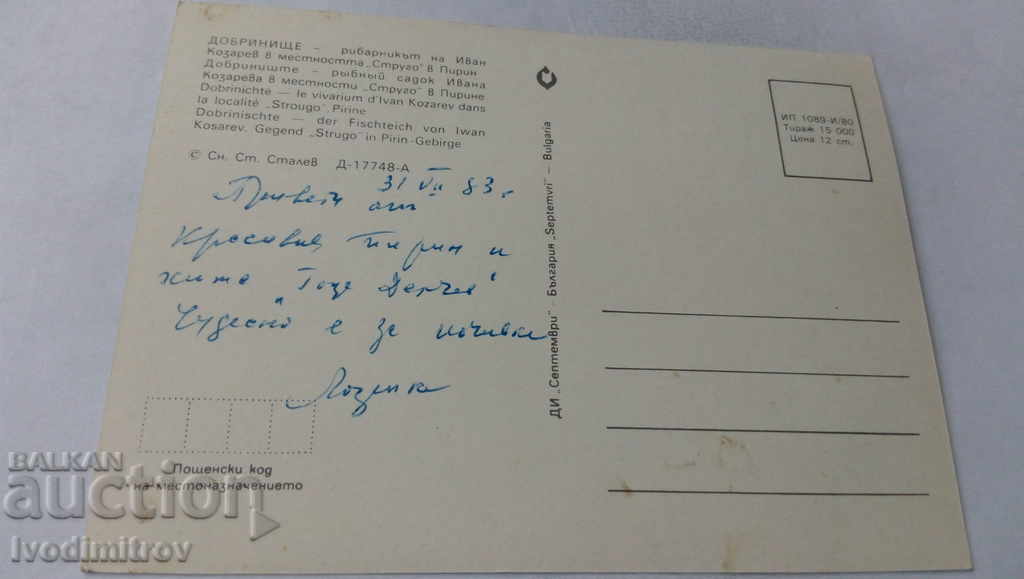 ДОБРИНИЩЕ – рибарникът на Иван
Козарев в местността „Струго" в Пирин
Добриниште – рыбный садок Ивана
Козарева в местности „Струго" в Пирине
Dobrinichte – le vivarium d'Ivan Kozarev dans
la localité „Strougo", Pirine
Dobrinischte – der Fischteich von Iwan
Kosarev, Gegend „Strugo" in Pirin-Gebirge
© Сн. Ст. Сталев Д-17748-А
31 VII 83 г.
Привет от
Красавия Пирин и
хижа "Гоце Делчев"
Чудесно е за почивка
Лозенка
Пощенски код
на местоназначението
ДИ „Септември" – България „Septemvri" – Bulgaria
ИП 1089-И/80
Тираж 15 000
Цена 12 ст.
BALKAN
auction
Ivodimitrov